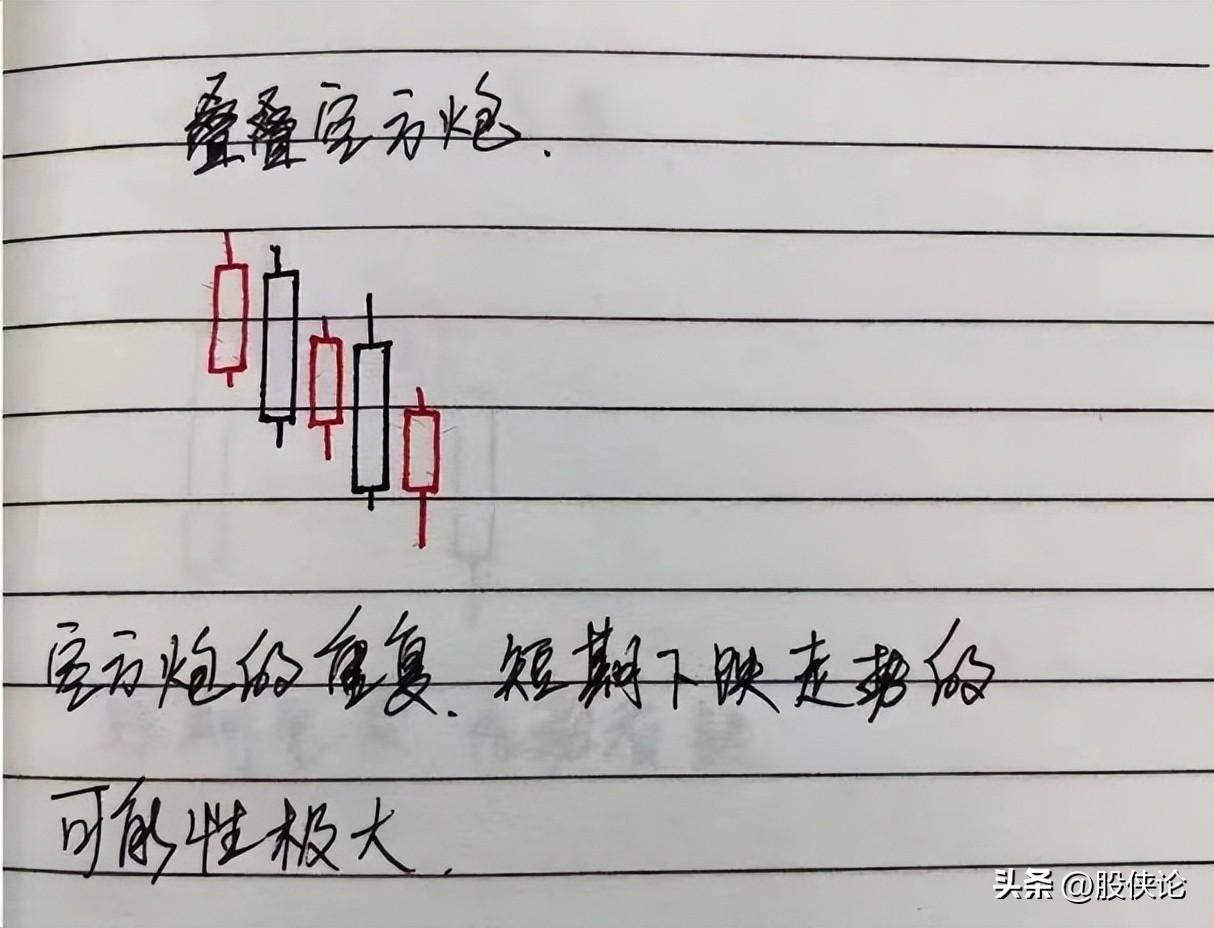 叠叠空方炮.
空方炮的重复.短期下跌走势的
可能性极大.
头条 @股侠论